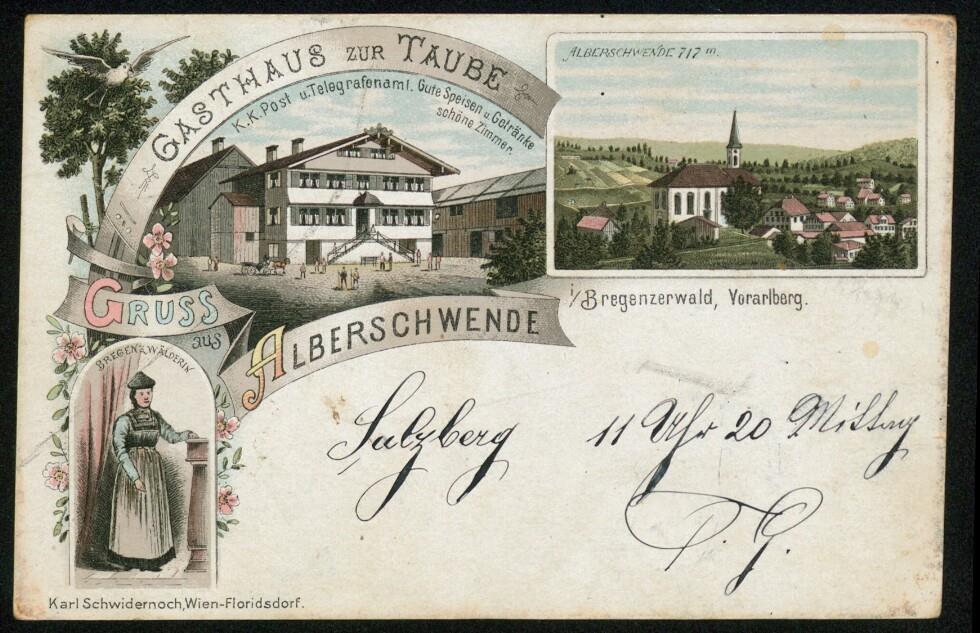 GASTHAUS ZUR TAUBE
K.K. Post u. Telegrafenamt. Gute Speisen u Getränke
schöne Zimmer.
ALBERSCHWENDE 717 m.
i/Bregenzerwald, Vorarlberg.
GRUSS
aus
ALBERSCHWENDE
BREGENZWÄLDERIN
Sulzberg 11 Uhr 20 Mittag
Karl Schwidernoch, Wien-Floridsdorf.